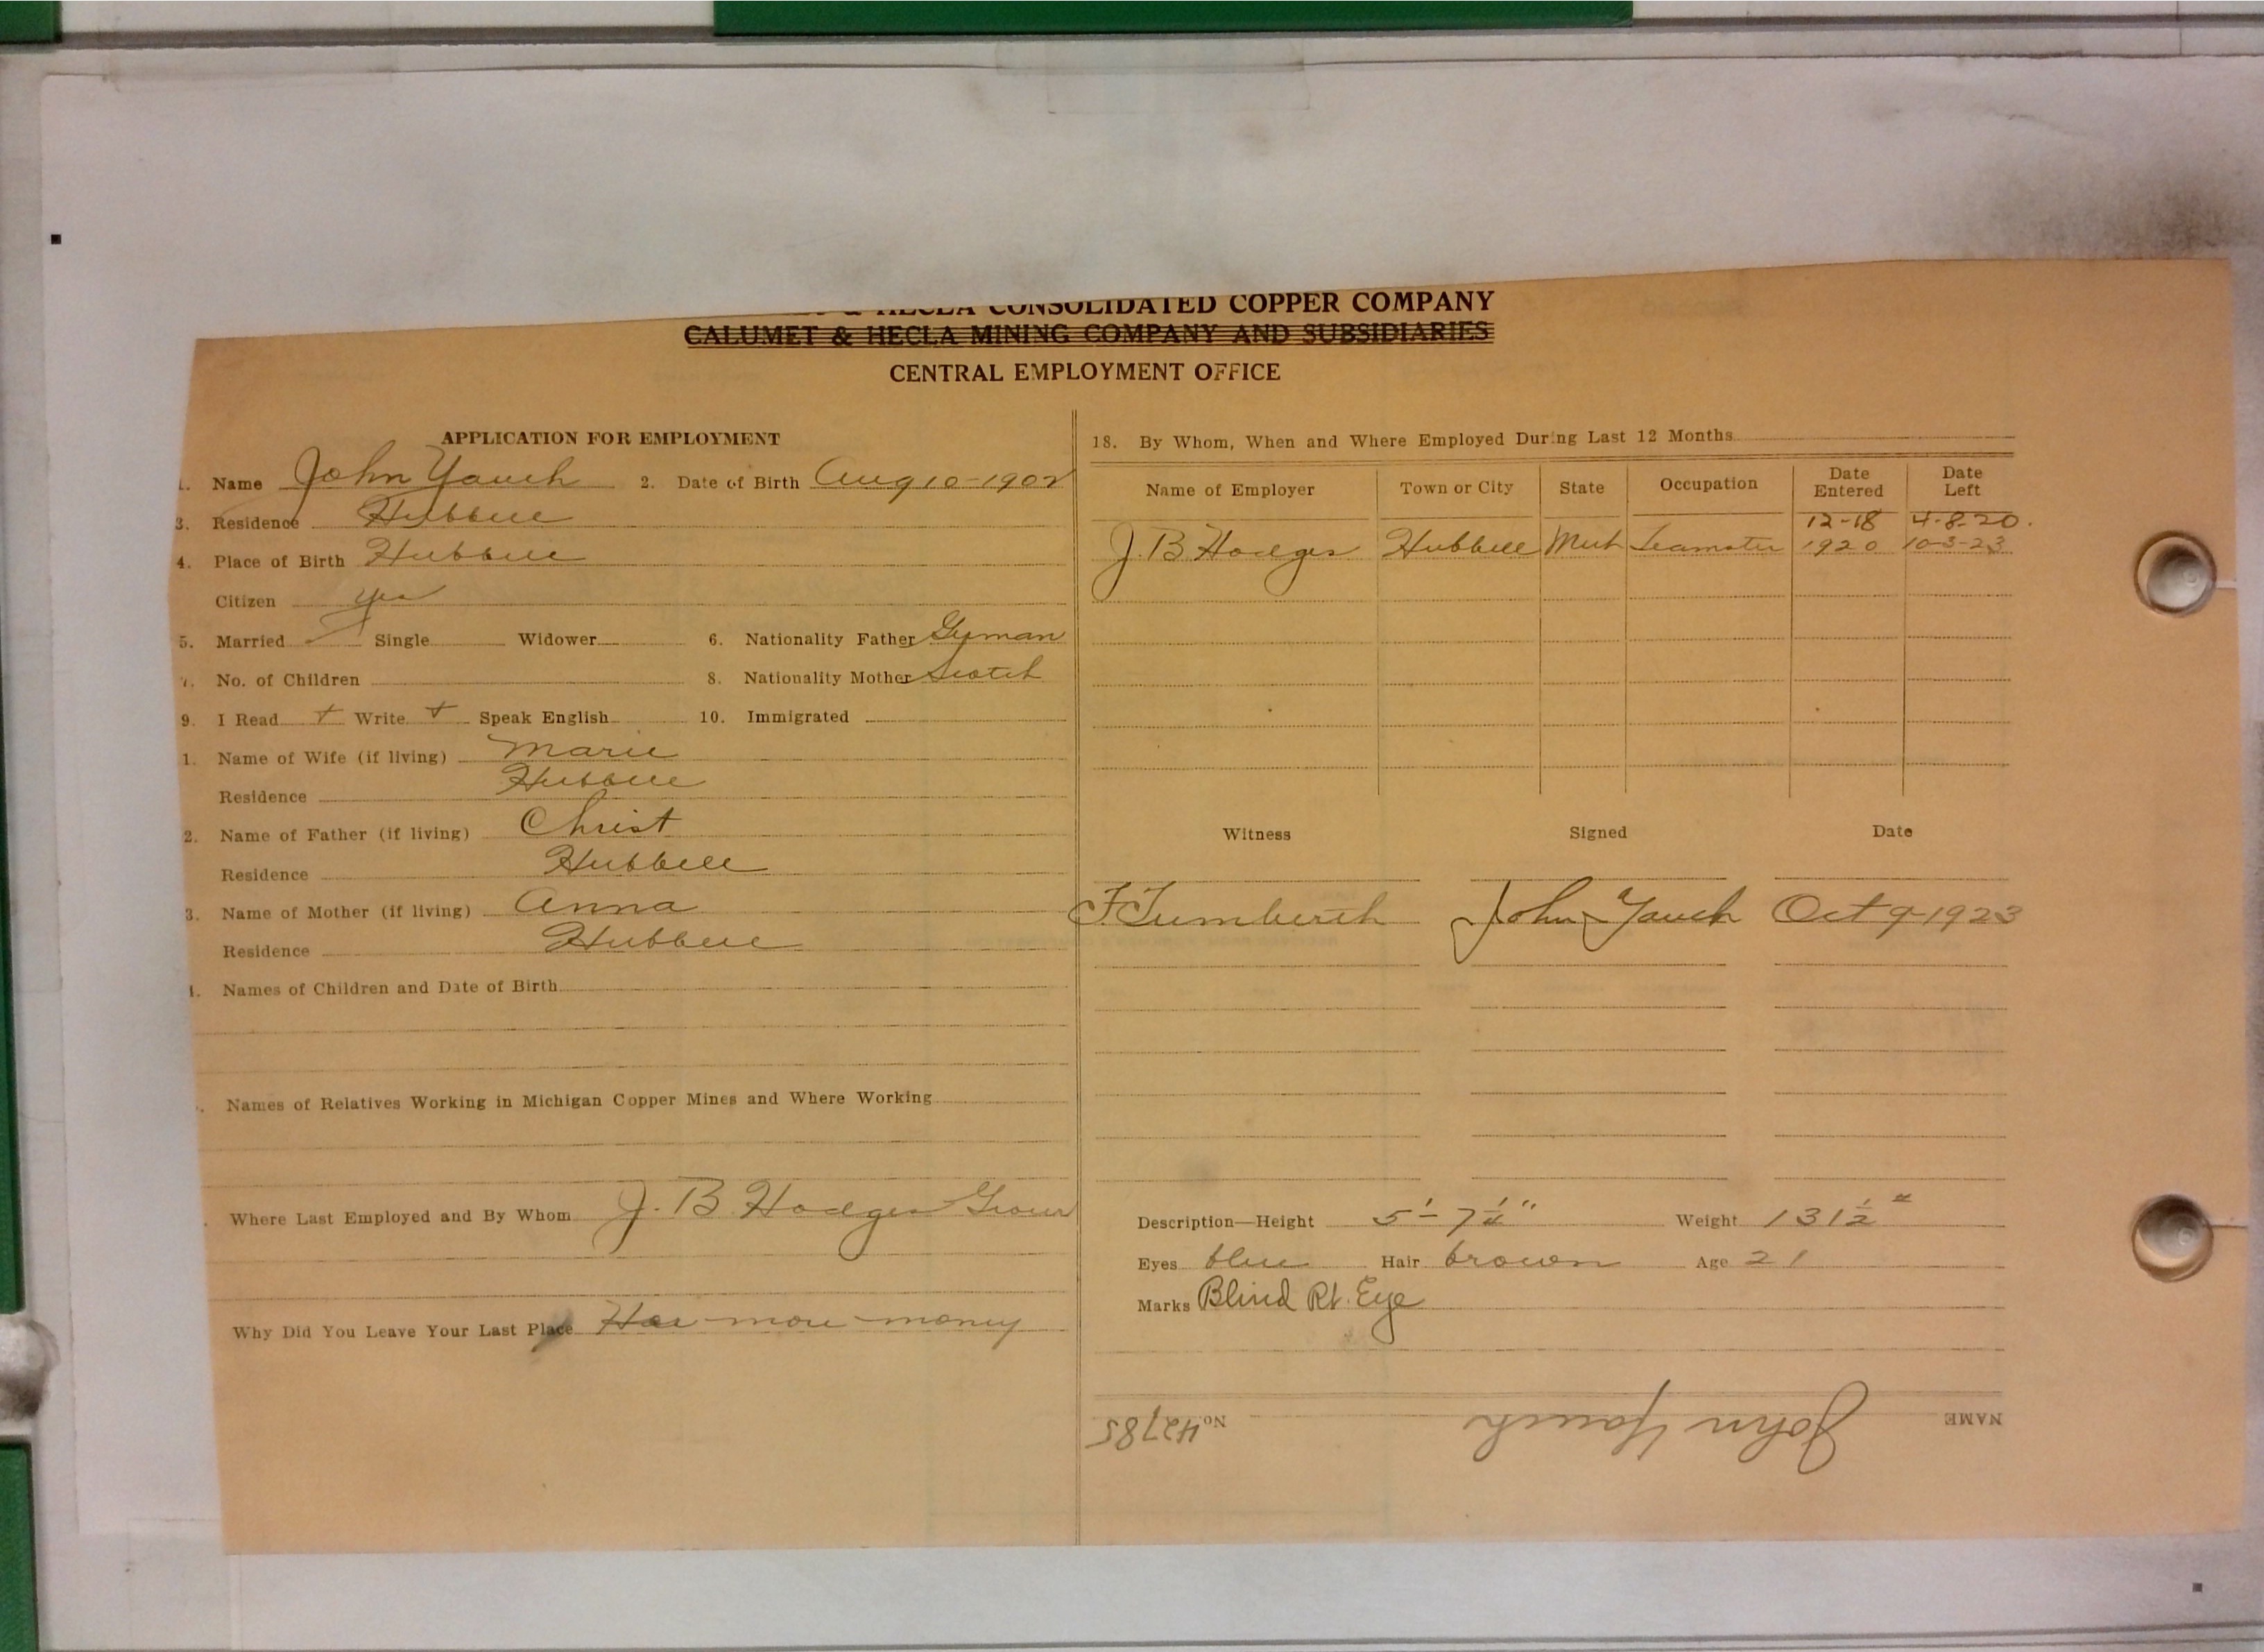 & HECLA CONSOLIDATED COPPER COMPANY
CALUMET & HECLA MINING COMPANY AND SUBSIDIARIES
CENTRAL EMPLOYMENT OFFICE
APPLICATION FOR EMPLOYMENT
1. Name John Yauch 2. Date of Birth Aug 10-1902
3. Residence Hubbell
4. Place of Birth Hubbell
Citizen yes
5. Married Single Widower 6. Nationality Father German
7. No. of Children 8. Nationality Mother Scotch
9. I Read + Write + Speak English 10. Immigrated
1. Name of Wife (if living) Marie
Residence Hubbell
2. Name of Father (if living) Christ
Residence Hubbell
3. Name of Mother (if living) Anna
Residence Hubbell
4. Names of Children and Date of Birth
Names of Relatives Working in Michigan Copper Mines and Where Working
Where Last Employed and By Whom J. B. Hodges
Why Did You Leave Your Last Place For more money
18. By Whom, When and Where Employed During Last 12 Months
Name of Employer Town or City State Occupation Date Entered Date Left
12-18 4-8-20.
J. B Hodges Hubbell Mich Teamster 1920 10-3-23
Witness Signed Date
John Yauch Oct 9-1923
Description—Height 5'-7 1/4" Weight 131 1/2 #
Eyes blue Hair brown Age 21
Marks Blind Rt. Eye
NAME John Yauch No. 42785